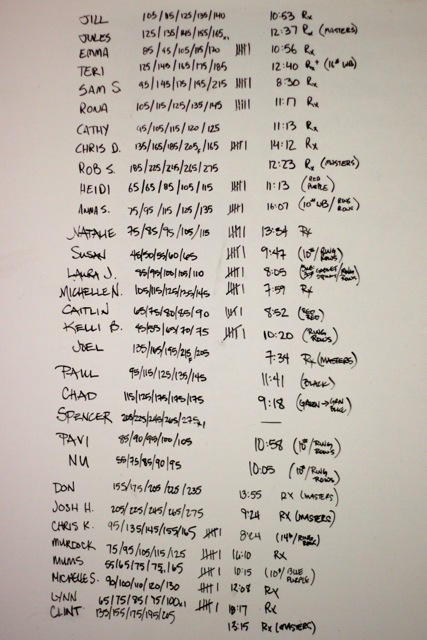 JILL 105/115/125/135/140 10:53 Rx
JULES 125/135/145/155/165 12:37 Rx (MASTERS)
EMMA 85/95/105/115/120 10:56 Rx
TERI 125/145/165/175/185 12:40 Rx+
SAM S 95/145/175/195/215 8:30 Rx
RONA 105/115/125/135/145 11:17 Rx
CATHY 95/105/115/120/125 11:13 Rx
CHRIS D. 135/165/185/205/165 14:12 Rx
ROB S. 185/225/245/265/275 12:23 Rx (MASTERS)
HEIDI 65/65/85/105/115 11:13 (RED PURPLE)
ANNA S. 75/95/115/125/135 16:07 (10# WB/RING ROWS)
NATALIE 75/85/95/105/115 13:54 Rx
SUSAN 45/50/55/60/65 9:47 (10#/RING ROWS)
LAURA J. 85/95/100/105/110 8:05
MICHELLE N. 105/115/125/135/145 7:59 Rx
CAITLIN 65/75/80/85/90 8:52
KELLI B. 45/55/65/70/75 10:20 (RING ROWS)
JOEL 135/165/195/215/205 7:34 Rx (MASTERS)
PAUL 95/115/125/135/145 11:41 (BLACK)
CHAD 115/125/175/195/175 9:18
SPENCER 205/225/245/265/275 —
PAVI 85/90/95/100/105 10:58 (10#/RING ROWS)
NU 55/75/85/90/95 10:05 (10#/RING ROWS)
DON 155/175/205/225/235 13:55 RX (MASTERS)
JOSH H. 205/225/245/265/275 9:24 RX (MASTERS)
CHRIS K. 95/135/145/155/165 8:24
MURDOCK 75/95/105/115/125 16:10 RX
MUMS 55/65/75/75/65 10:15 (10#/BLUE PURPLE)
MICHELLE S. 90/100/110/120/130 12:08 Rx
LYNN 65/75/85/95/100 10:17 Rx
CLINT 135/155/175/195/205 13:15 Rx (MASTERS)